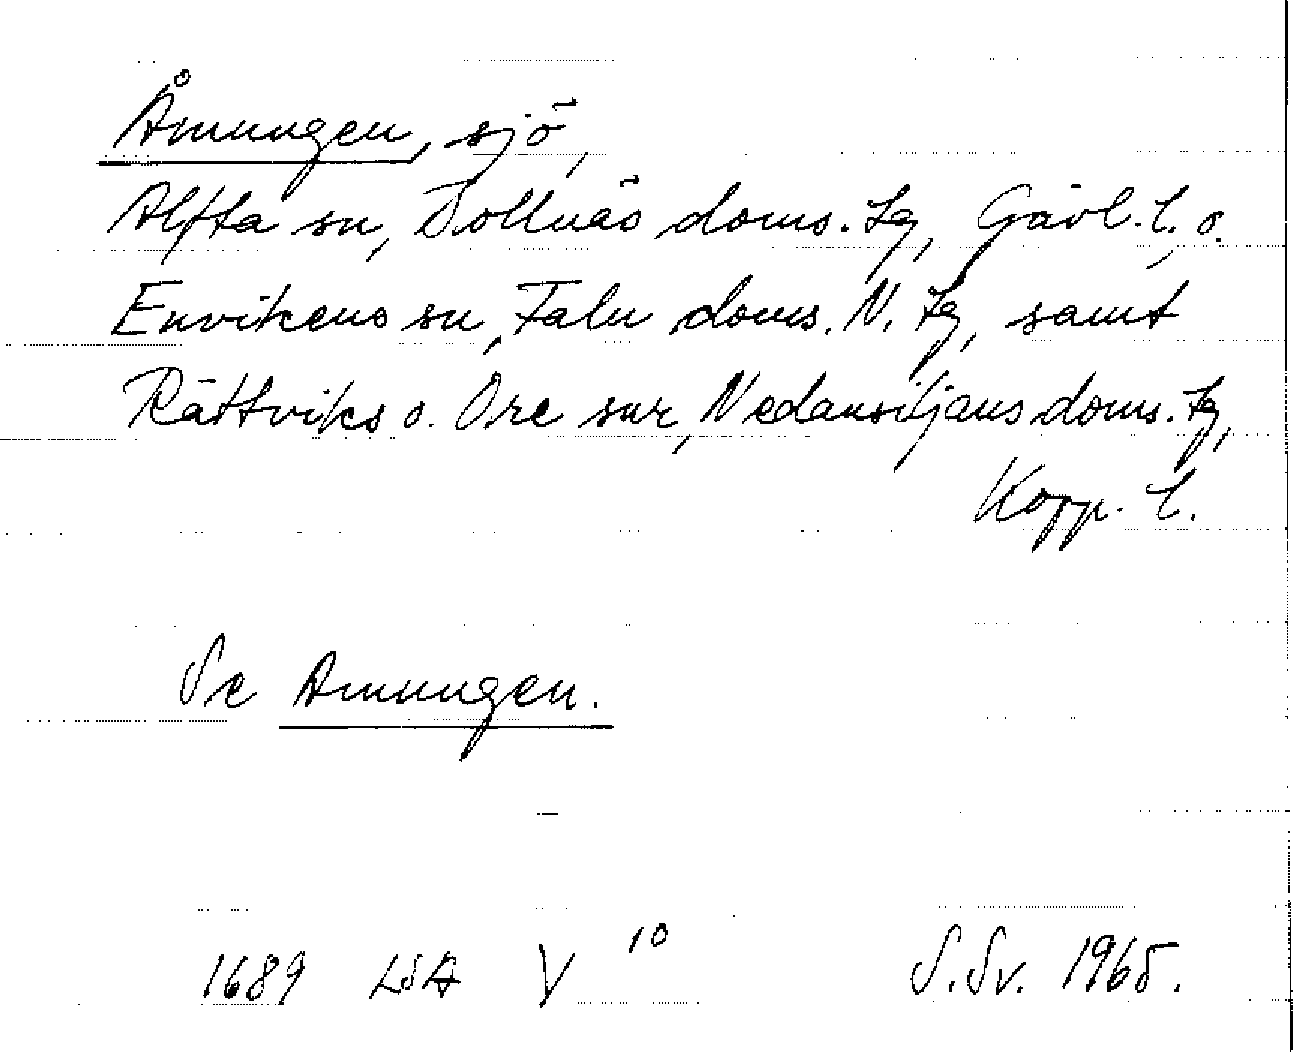 Åmungen, sjö,
Alfta sn, Bollnäs doms. tg, Gävl. l. o.
Envikens sn, Falu doms. N. tg, samt
Rättviks o. Ore snr, Nedansiljans doms. tg,
Kopp. l.
Se Amungen.
1689 LSA V 10 S.Sv. 1965.